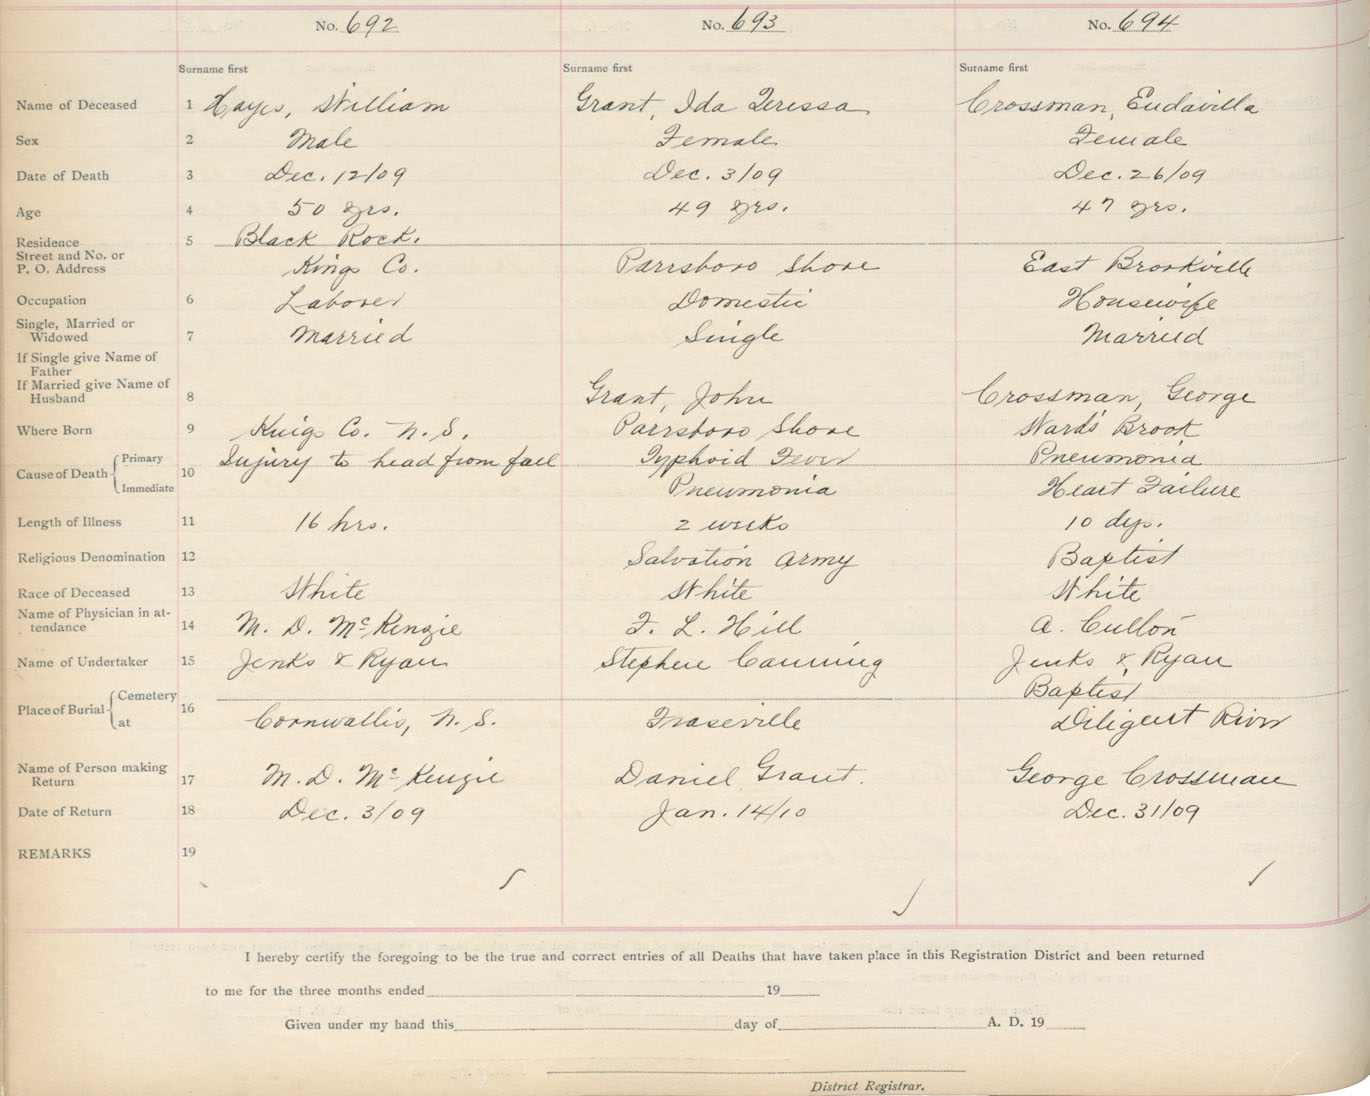 No. 692 No. 693 No. 694
Surname first Surname first Surname first
Name of Deceased 1 Hayes, William Grant, Ida Teressa Crossman, Eudavilla
Sex 2 Male Female Female
Date of Death 3 Dec. 12/09 Dec. 3/09 Dec. 26/09
Age 4 50 yrs. 49 yrs. 47 yrs.
Residence 5 Black Rock.
Street and No. or
P. O. Address Kings Co. Parrsboro Shore East Brookville
Occupation 6 Laborer Domestic Housewife
Single, Married or
Widowed 7 Married Single Married
If Single give Name of
Father
If Married give Name of
Husband 8 Grant, John Crossman, George
Where Born 9 Kings Co. N. S. Parrsboro Shore Wards Brook
Cause of Death Primary 10 Injury to head from fall Typhoid Fever Pneumonia
Immediate Pneumonia Heart Failure
Length of Illness 11 16 hrs. 2 weeks 10 dys.
Religious Denomination 12 Salvation Army Baptist
Race of Deceased 13 White White White
Name of Physician in at-
tendance 14 M. D. McKenzie F. L. Hill A. Cullon
Name of Undertaker 15 Jenks & Ryan Stephen Canning Jenks & Ryan
Place of Burial Cemetery 16 Baptist
at Cornwallis, N. S. Fraserville Diligent River
Name of Person making
Return 17 M. D. McKenzie Daniel Grant. George Crossman
Date of Return 18 Dec. 3/09 Jan. 14/10 Dec. 31/09
REMARKS 19
I hereby certify the foregoing to be the true and correct entries of all Deaths that have taken place in this Registration District and been returned
to me for the three months ended 19
Given under my hand this day of A. D. 19
District Registrar.